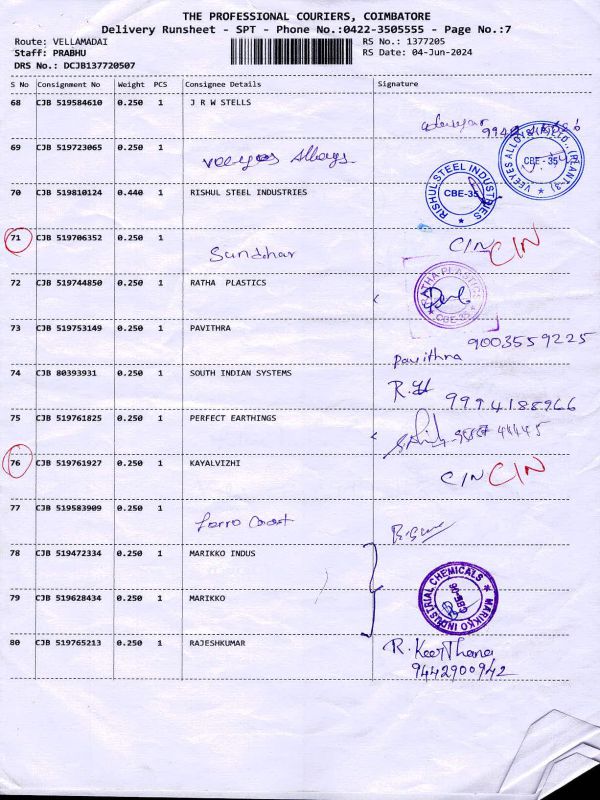 THE PROFESSIONAL COURIERS, COIMBATORE
Delivery Runsheet - SPT - Phone No.:0422-3505555 - Page No.:7
Route: VELLAMADAI RS No.: 1377205
Staff: PRABHU RS Date: 04-Jun-2024
DRS No.: DCJB137720507
S No Consignment No Weight PCS Consignee Details Signature
68 CJB 519584610 0.250 1 J R W STELLS
69 CJB 519723065 0.250 1 Veeyes Alloys
VEEYES ALLOYS (P) LTD., (PLANT-3) CBE-35
70 CJB 519810124 0.440 1 RISHUL STEEL INDUSTRIES
RISHUL STEEL INDUSTRIES CBE-35
71 CJB 519706352 0.250 1 Sundhar C/N C/N
72 CJB 519744850 0.250 1 RATHA PLASTICS
RATHA PLASTICS CBE-35
73 CJB 519753149 0.250 1 PAVITHRA
Pavithra 9003559225
74 CJB 80393931 0.250 1 SOUTH INDIAN SYSTEMS
9994185966
75 CJB 519761825 0.250 1 PERFECT EARTHINGS
76 CJB 519761927 0.250 1 KAYALVIZHI C/N C/N
77 CJB 519583909 0.250 1 Ferro Coast
78 CJB 519472334 0.250 1 MARIKKO INDUS
79 CJB 519628434 0.250 1 MARIKKO
MARIKKO INDUSTRIAL CHEMICALS
80 CJB 519765213 0.250 1 RAJESHKUMAR
R. Keerthana
9442900942